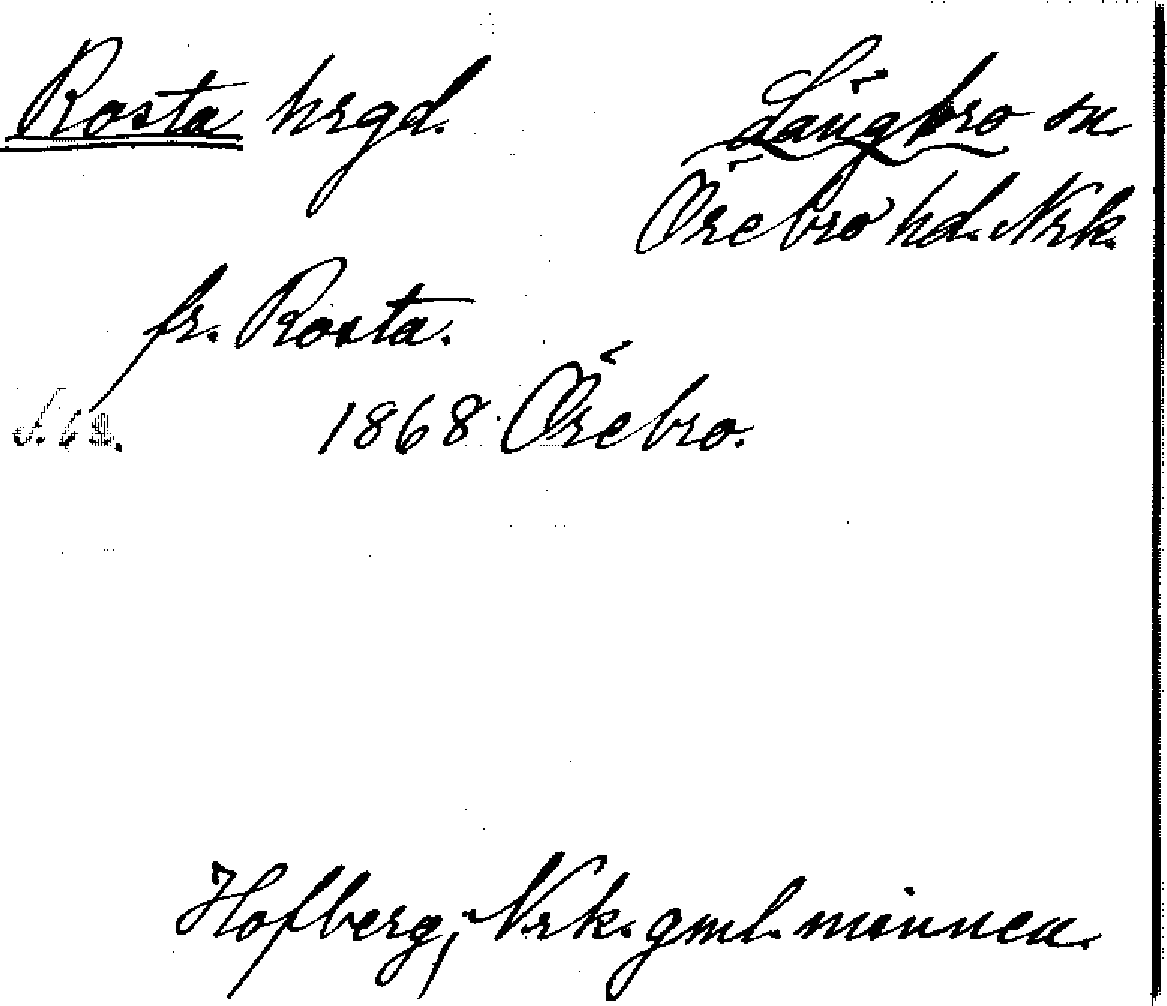 Rosta hrgd.
Längbro sn
Örebro hd. Nrk.
fr. Rosta.
S. 62. 1868 Örebro.
Hofberg, Nrk. gml. minnen.